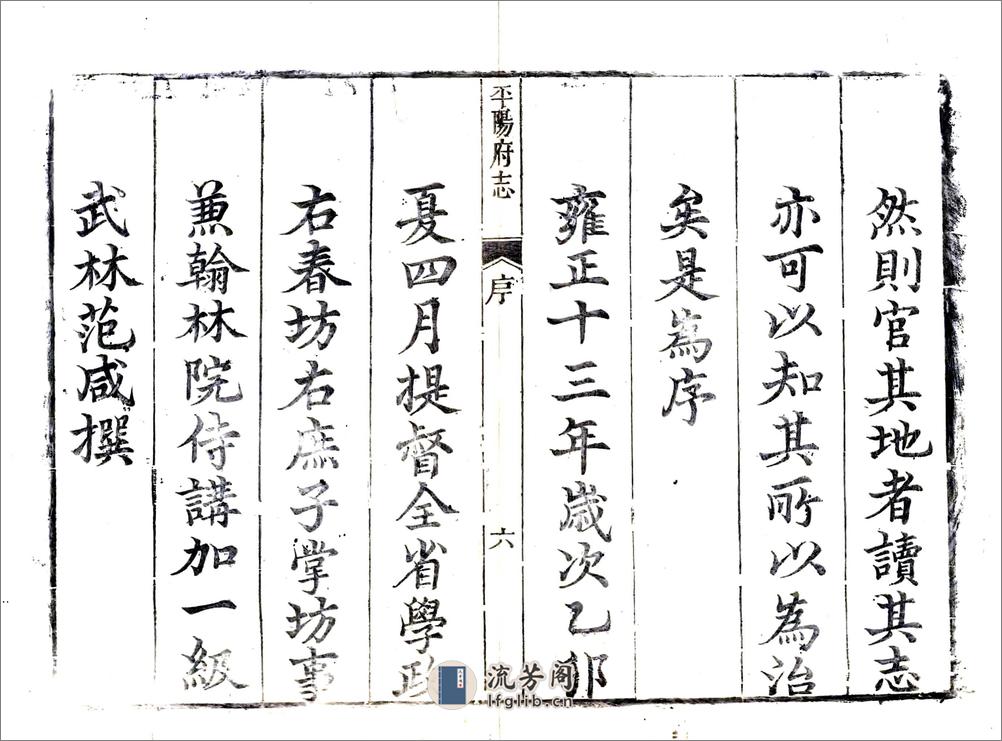 然則官其地者讀其志
亦可以知其所以為治
矣是為序
雍正十三年歲次乙卯
平陽府志
序
六
夏四月提督全省學政
右春坊右庶子掌坊事
兼翰林院侍講加一級
武林范咸撰
流芳阁
lfglib.cn